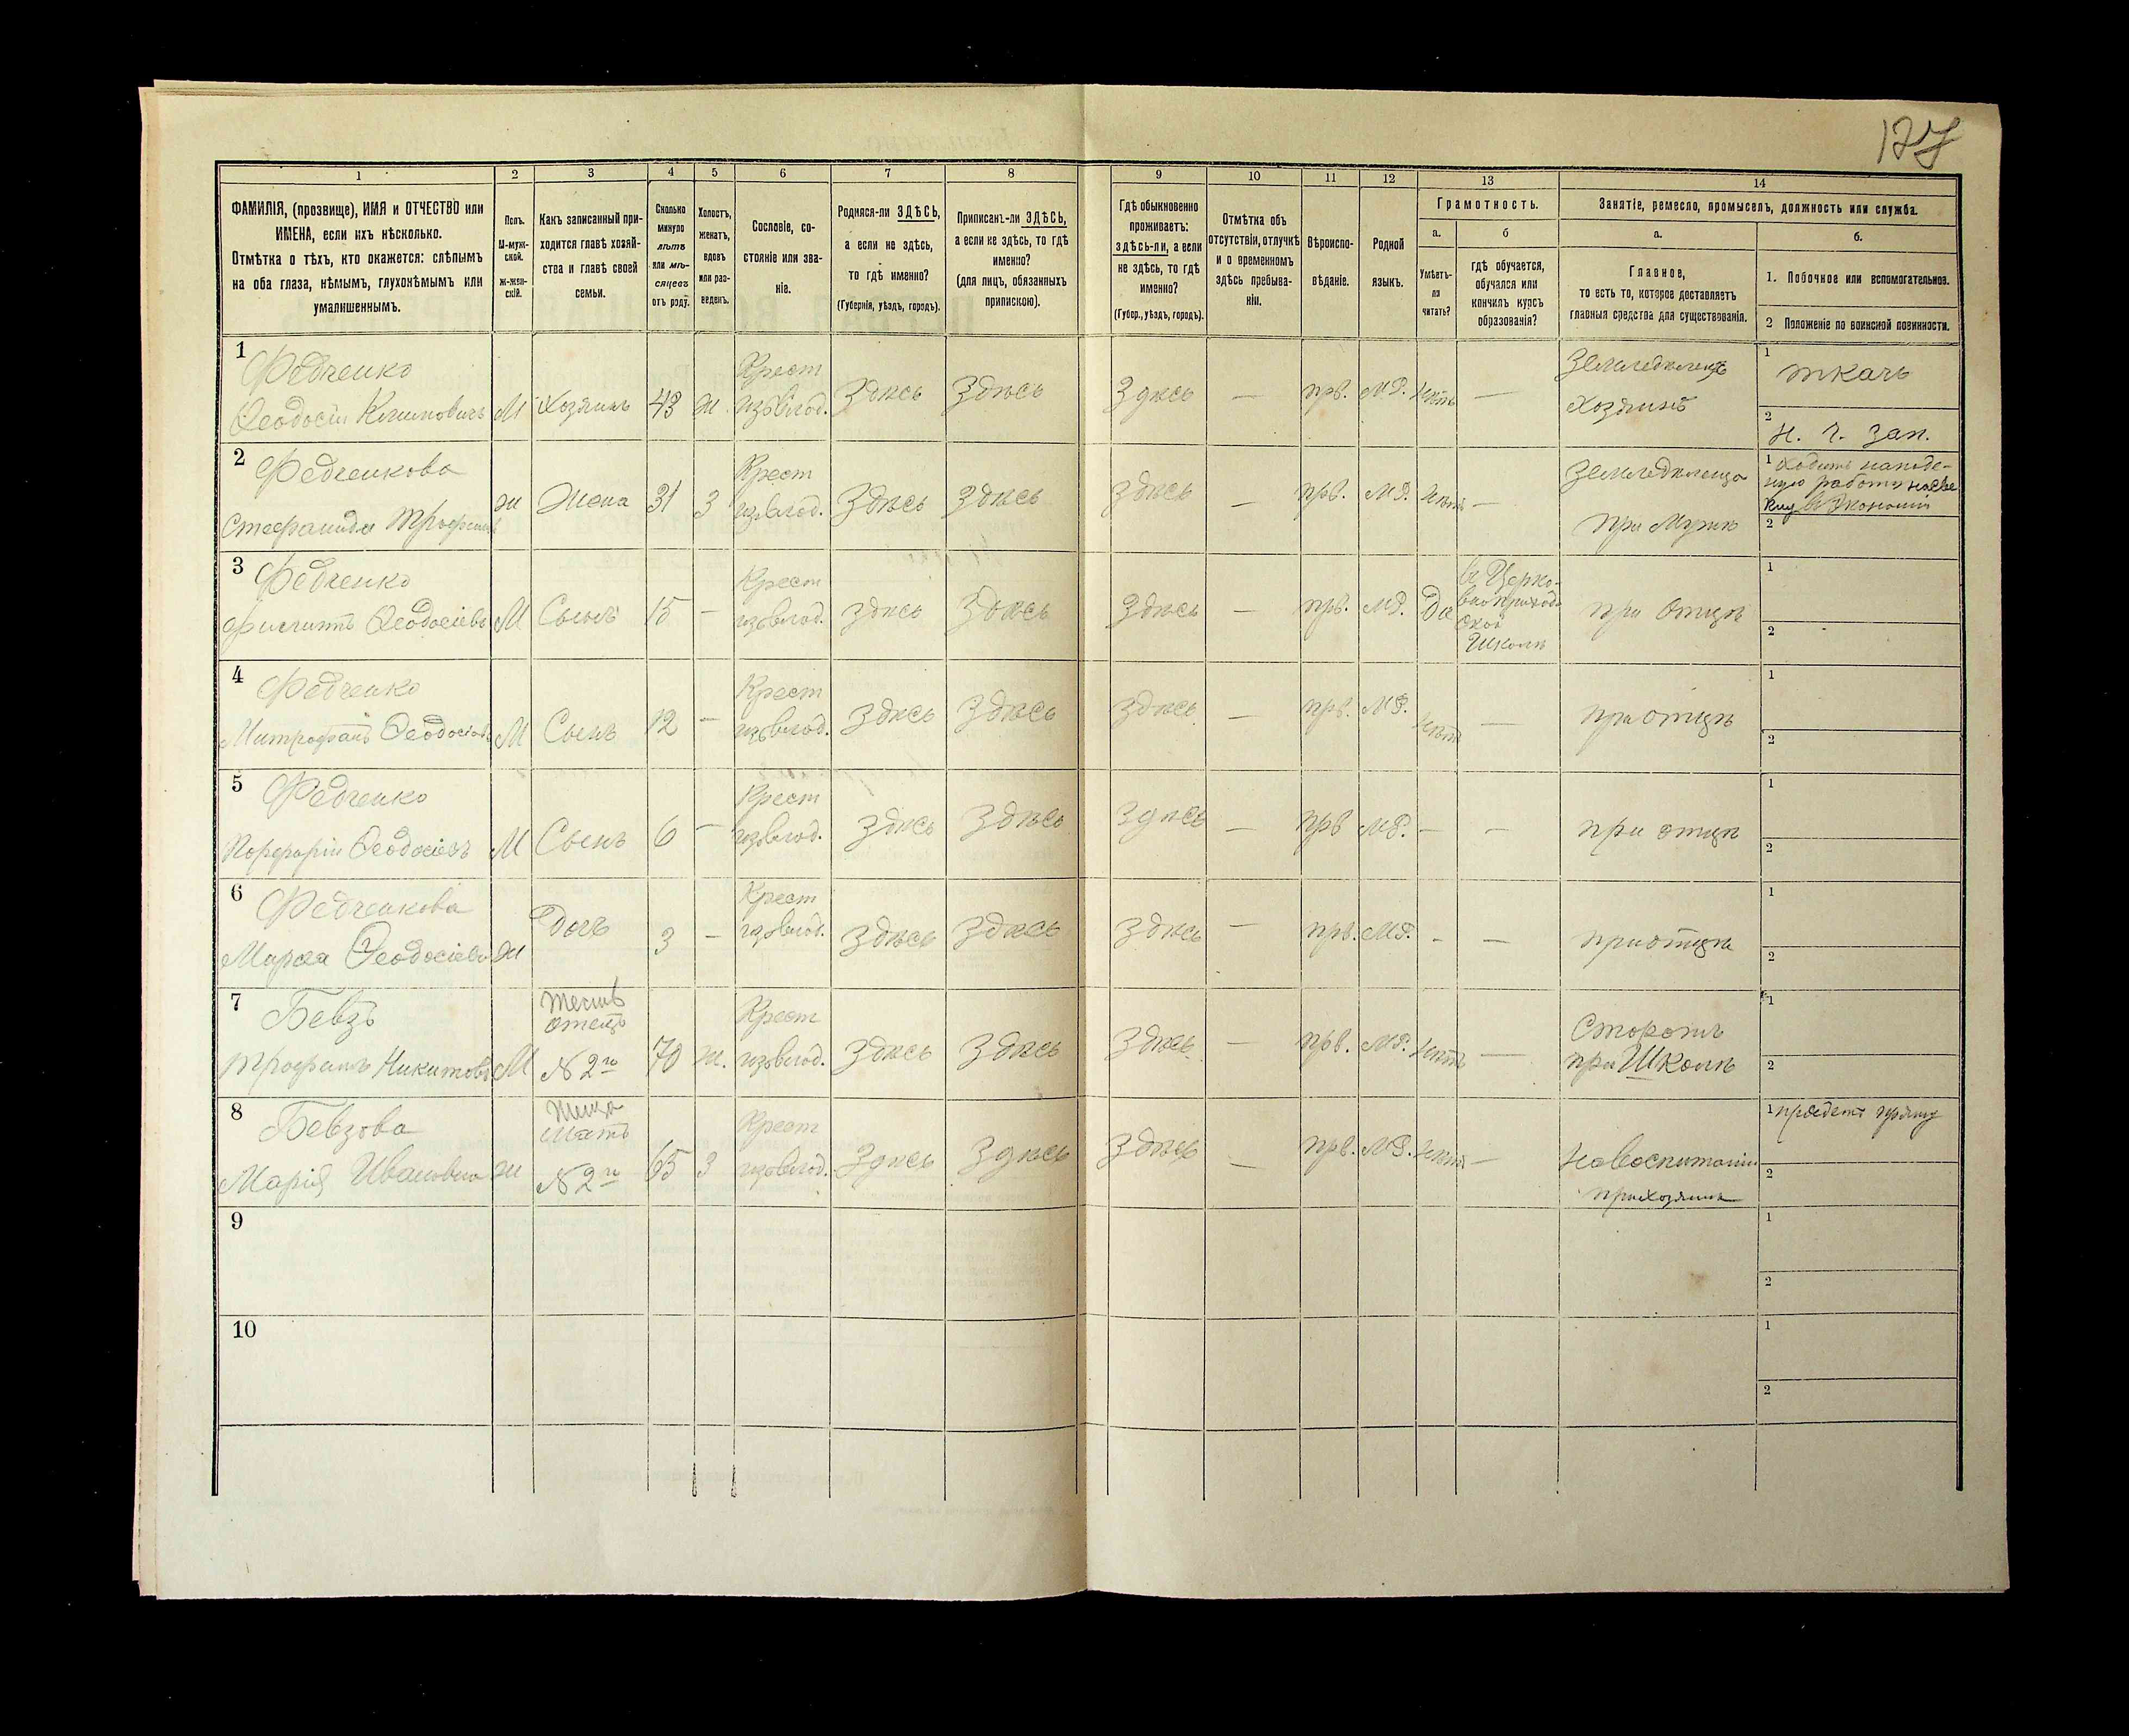 127
1 2 3 4 5 6 7 8 9 10 11 12 13 14
ФАМИЛІЯ, (прозвище), ИМЯ и ОТЧЕСТВО или
ИМЕНА, если ихъ нѣсколько.
Отмѣтка о тѣхъ, кто окажется: слѣпымъ
на оба глаза, нѣмымъ, глухонѣмымъ или
умалишеннымъ.
Полъ.
М-муж-
ской.
Ж-жен-
скій.
Какъ записанный при-
ходится главѣ хозяй-
ства и главѣ своей
семьи.
Сколько
минуло
лѣтъ
или мѣ-
сяцевъ
отъ роду.
Холостъ,
женатъ,
вдовъ
или раз-
веденъ.
Сословіе, со-
стояніе или зва-
ніе.
Родился-ли ЗДѢСЬ,
а если не здѣсь,
то гдѣ именно?
(Губернія, уѣздъ, городъ).
Приписанъ-ли ЗДѢСЬ,
а если не здѣсь, то гдѣ
именно?
(для лицъ, обязанныхъ
припискою).
Гдѣ обыкновенно
проживаетъ:
здѣсь-ли, а если
не здѣсь, то гдѣ
именно?
(Губер., уѣздъ, городъ).
Отмѣтка объ
отсутствіи, отлучкѣ
и о временномъ
здѣсь пребыва-
ніи.
Вѣроиспо-
вѣданіе.
Родной
языкъ.
Грамотность.
а.
Умѣетъ-
ли
читать?
б
гдѣ обучается,
обучался или
кончилъ курсъ
образованія?
Занятіе, ремесло, промыселъ, должность или служба.
а.
Главное,
то есть то, которое доставляетъ
главныя средства для существованія.
б.
1. Побочное или вспомогательное.
2 Положеніе по воинской повинности.
1
Федченко
Ѳеодосій Климовичъ М Хозяинъ 43 Ж.
Крест
изъ влад. Здѣсь Здѣсь Здѣсь — прв. М.Р. Нѣтъ —
Земледѣлецъ
Хозяинъ
1 ткачъ
2 Н. ч. зап.
2
Федченкова
Стефанида Трофим Ж Жена 31 З
Крест
изъ влад. Здѣсь Здѣсь Здѣсь — прв. М.Р. Нѣтъ —
Земледѣлица
при Мужѣ
1 Ходитъ на поде-
ную работу
въ Экономіи
2
3
Федченко
Филиппъ Ѳеодосіевъ М Сынъ 15 —
Крест
изъ влад. Здѣсь Здѣсь Здѣсь — прв. М.Р. Да
въ Церко-
вноприход-
ской
Школѣ
при Отцѣ
1
2
4
Федченко
Митрофанъ Ѳеодосіевъ М Сынъ 12 —
Крест
изъ влад. Здѣсь Здѣсь Здѣсь — прв. М.Р. Нѣтъ —
при отцѣ
1
2
5
Федченко
Порфирій Ѳеодосіевъ М Сынъ 6 —
Крест
изъ влад. Здѣсь Здѣсь Здѣсь — прв М.Р. — —
при отцѣ
1
2
6
Федченкова
Марѳа Ѳеодосіева Ж Дочь 3 —
Крест
изъ влад. Здѣсь Здѣсь Здѣсь — прв. М.Р. — —
при отцѣ
1
2
7
Бевзъ
Трофимъ Никитовъ М
тесть
отецъ
№ 2го 70 Ж.
Крест
изъ влад. Здѣсь Здѣсь Здѣсь — прв. М.Р. Нѣтъ —
Сторожъ
при Школѣ
1
2
8
Бевзова
Марія Ивановна Ж
теща
Мать
№ 2го 65 З
Крест
изъ влад. Здѣсь Здѣсь Здѣсь — прв. М.Р. Нѣтъ —
На воспитаніи
при хозяинѣ
1 прядетъ пряжу
2
9
1
2
10
1
2